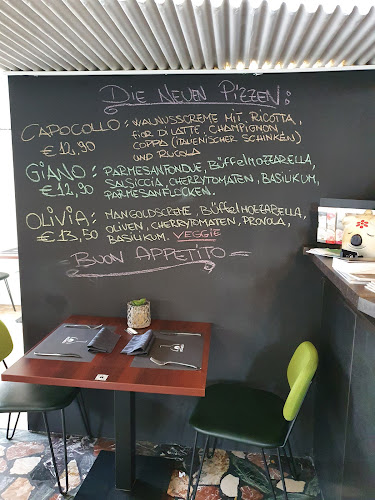 DIE NEUEN PIZZEN:
CAPOCOLLO: WALNUSSCREME MIT RICOTTA,
€ 12,90 FIOR DI LATTE, CHAMPIGNON
COPPA (ITALIENISCHER SCHINKEN)
UND RUCOLA
GIANO: PARMESANFONDUE, BÜFFELMOZZARELLA,
€ 12,90 SALSICCIA, CHERRYTOMATEN, BASILIKUM,
PARMESANFLOCKEN.
OLIVIA: MANGOLDSCREME, BÜFFELMOZZARELLA,
€ 13,50 OLIVEN, CHERRYTOMATEN, PROVOLA,
BASILIKUM. VEGGIE
BUON APPETITO